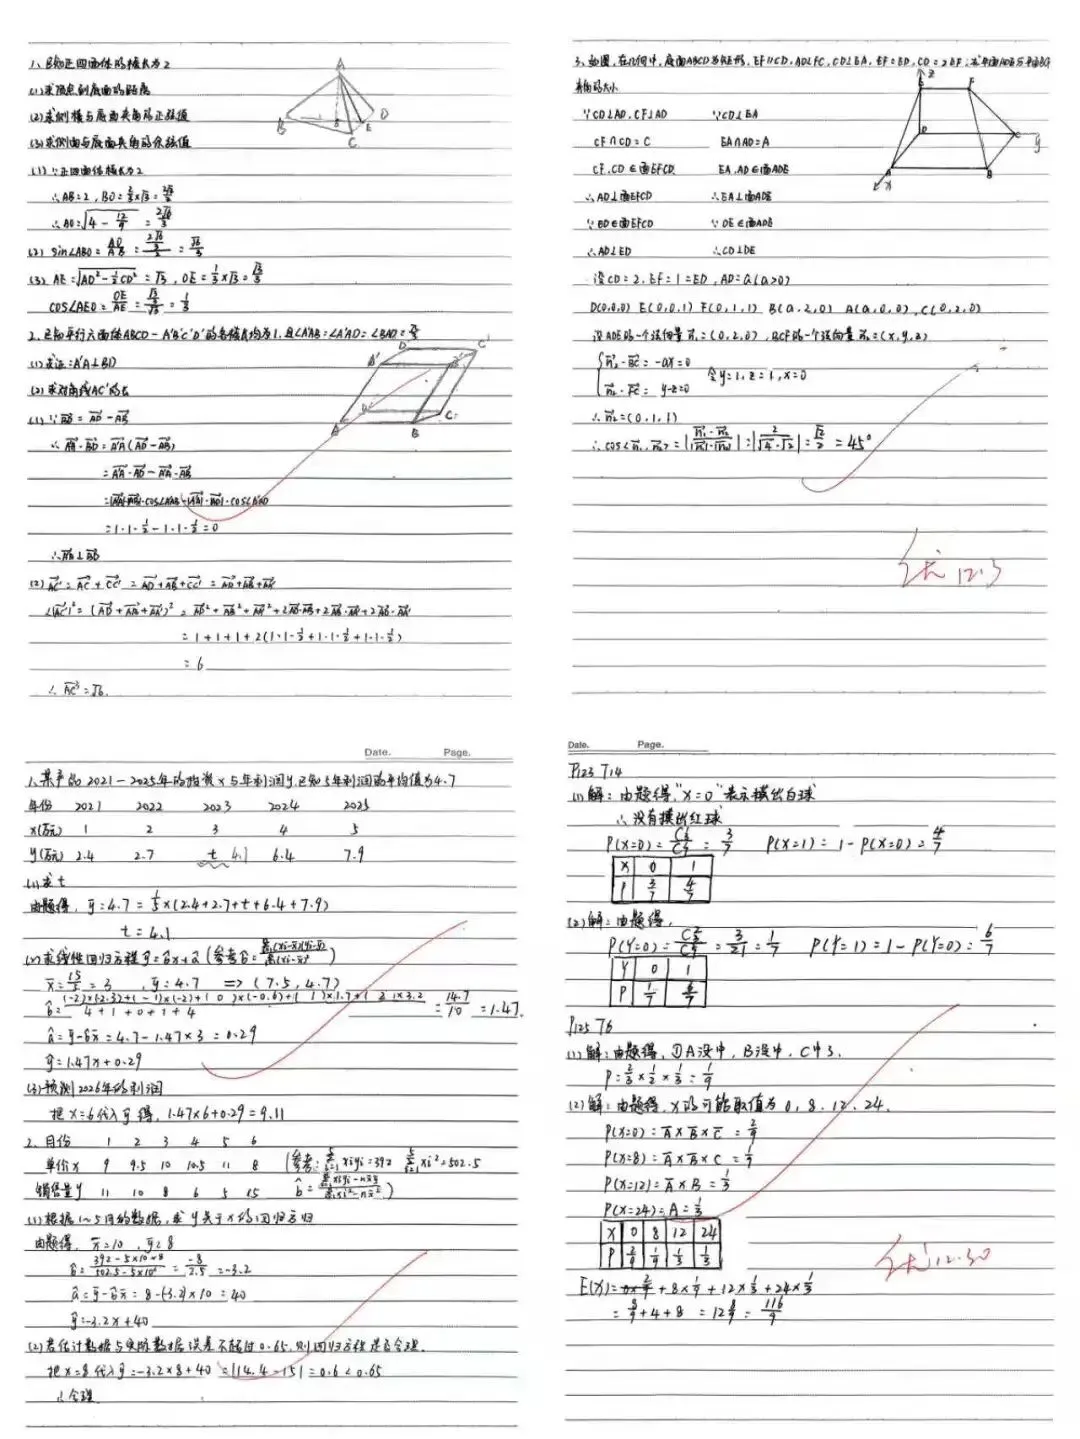 1、已知正四面体的棱长为2
(1)求顶点到底面的距离
(2)求侧棱与底面夹角的正弦值
(3)求侧面与底面夹角的余弦值
A
B
C
D
E
(1)∵正四面体棱长为2
∴AB=2，BO=2/3×√3=2√3/3
∴AO=√(4-12/9)=2√6/3
(2) sin∠ABO=AO/AB=(2√6/3)/2=√6/3
(3) AE=√(AD²-½CD²)=√3，OE=1/3×√3=√3/3
cos∠AEO=OE/AE=(√3/3)/√3=1/3
2、已知平行六面体ABCD-A'B'C'D'的各棱长均为1，且∠A'AB=∠A'AD=∠BAD=π/3
(1)求证：A'A⊥BD
(2)求对角线AC'的长
(1)∵BD=AD-AB
∴AA'·BD=A'A(AD-AB)
=A'A·AD-A'A·AB
=1·1·½-1·1·½=0
∴AA'⊥BD
(2)AC'=AC+CC'=AD+AB+CC'=AD+AB+AA'
=1+1+1+2(1·1·½+1·1·½+1·1·½)
=6
∴AC'=√6.
∵CD⊥AD，CF⊥AD
∵CD⊥EA
CF∩CD=C
EA∩AD=A
CF，CD∈面EFCD
EA，AD∈面ADE
∴AD⊥面EFCD
∴EA⊥面ADE
∵ED∈面EFCD
∵DE∈面ADE
∴AD⊥ED
∴CD⊥DE
设CD=2，EF=1=ED，AD=a(a>0)
D(0,0,0) E(0,0,1) F(0,1,1) B(a,2,0) A(a,0,0)，C(0,2,0)
设ADE的一个法向量n₁=(0,2,0)，BCF的一个法向量n₂=(x,y,z)
n₂·BC=-ax=0
n₂·FC=y-z=0
令y=1，z=1，x=0
∴n₂=(0,1,1)
∴cos<n₁,n₂>=|n₁·n₂/|n₁|·|n₂||=|2/√4·√2|=√2/2=45°
优 12.3
Date. Page.
1、某产品2021-2025年的投资x与年利润y，已知5年利润的平均值为4.7
年份 2021 2022 2023 2024 2025
x(万元) 1 2 3 4 5
y(万元) 2.4 2.7 t 4.1 6.4 7.9
(1)求t
由题得，ȳ=4.7=1/5×(2.4+2.7+t+6.4+7.9)
t=4.1
x̄=15/5=3，ȳ=4.7 => (7.5, 4.7)
b̂=(-2)×(-2.3)+(-1)×(-2)+(0)×(-0.6)+(1)×1.7+(2)×3.2/4+1+0+1+4=14.7/10=1.47.
â=ȳ-b̂x̄=4.7-1.47×3=0.29
ŷ=1.47x+0.29
(3)预测2026年的利润
把x=6代入ŷ得，1.47×6+0.29=9.11
2、月份 1 2 3 4 5 6
单价x 9 9.5 10 10.5 11 8
销售量y 11 10 8 6 5 15
(参考：Σxiyi=392 Σxi²=502.5
b̂=(Σxiyi-nx̄ȳ)/(Σxi²-nx̄²))
(1)根据1~5月的数据，求y关于x的回归方程
由题得，x̄=10，ȳ=8
b̂=(392-5×10×8)/(502.5-5×10²)=-8/2.5=-3.2
â=ȳ-b̂x̄=8-(-3.2)×10=40
ŷ=-3.2x+40
(2)若估计数据与实际数据误差不超过0.65，则回归方程是否合理.
把x=8代入ŷ=-3.2×8+40 =|14.4-15|=0.6<0.65
∴合理.
Date. Page.
P123 T14
(1)解：由题得，"X=0"表示摸出白球
∴没有摸出红球
P(X=1)=1-P(X=0)=4/7
X 0 1
P 3/7 4/7
(2)解：由题得，
P(Y=1)=1-P(Y=0)=6/7
Y 0 1
P 1/7 6/7
P125 T6
(1)解：由题得，①A没中，B没中，C中3.
P=2/3×1/2×1/3=1/9
(2)解：由题得，X的可能取值为0，8，12，24.
P(X=0)=A̅×B̅×C̅=2/9
P(X=8)=A̅×B̅×C=1/9
P(X=12)=A̅×B=1/3
P(X=24)=A=1/3
X 0 8 12 24
P 2/9 1/9 1/3 1/3
E(X)=0×2/9+8×1/9+12×1/3+24×1/3
=8/9+4+8=12 8/9=116/9
优 12.30